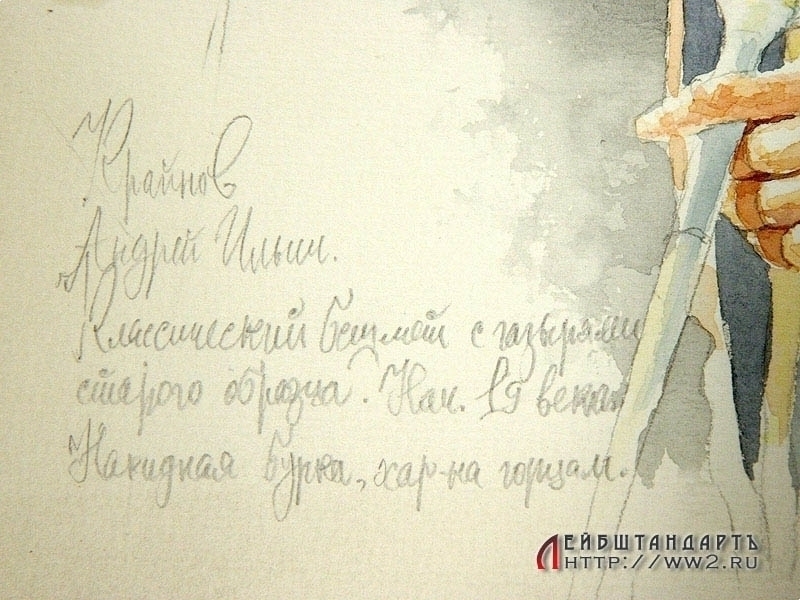 Крайнов
Андрей Ильич.
Классический бешмет с газырями
старого образца. Нач. 19 века
Накидная бурка, хар-на горцам.
ЛЕЙБШТАНДАРТЪ
HTTP://WW2.RU